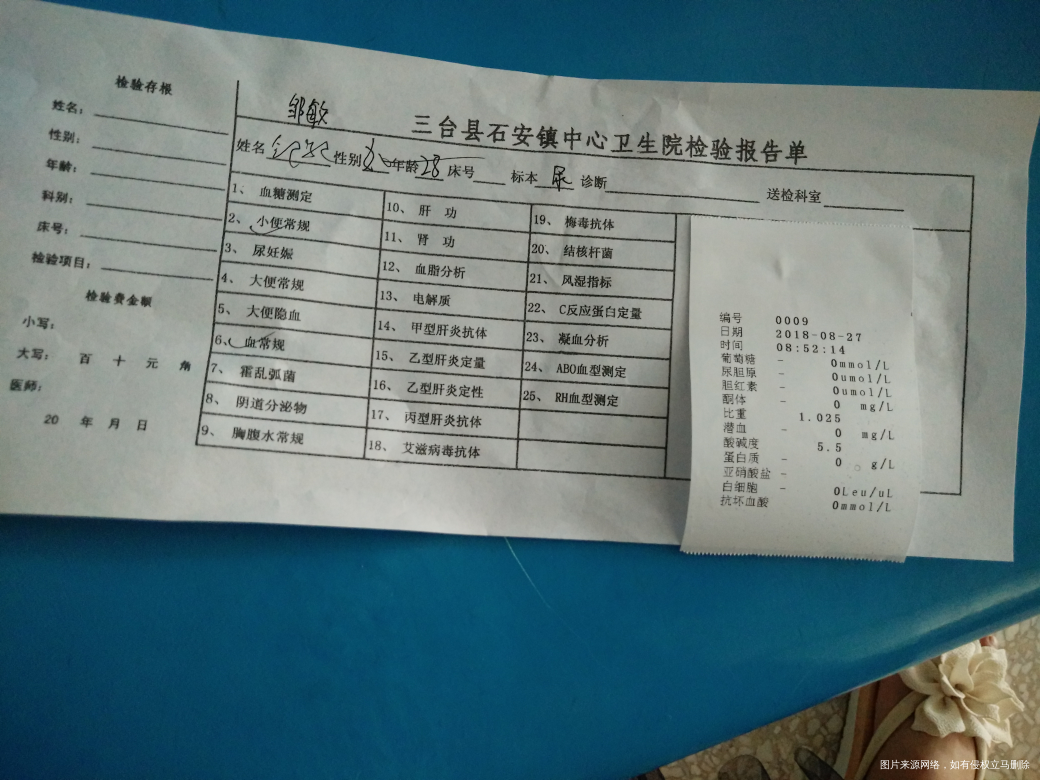 检验存根
姓名：
性别：
年龄：
科别：
床号：
检验项目：
检验费金额
小写：
大写： 百 十 元 角
医师：
20 年 月 日
邹敏
三台县石安镇中心卫生院检验报告单
姓名 性别 女 年龄 28 床号 标本 尿 诊断 送检科室
1、 血糖测定
2、 小便常规
3、 尿妊娠
4、 大便常规
5、 大便隐血
6、 血常规
7、 霍乱弧菌
8、 阴道分泌物
9、 胸腹水常规
10、 肝 功
11、 肾 功
12、 血脂分析
13、 电解质
14、 甲型肝炎抗体
15、 乙型肝炎定量
16、 乙型肝炎定性
17、 丙型肝炎抗体
18、 艾滋病毒抗体
19、 梅毒抗体
20、 结核杆菌
21、 风湿指标
22、 C反应蛋白定量
23、 凝血分析
24、 ABO血型测定
25、 RH血型测定
编号 0009
日期 2018-08-27
时间 08:52:14
葡萄糖 - 0mmol/L
尿胆原 - 0umol/L
胆红素 - 0umol/L
酮体 - 0 mg/L
比重 1.025
潜血 - 0 mg/L
酸碱度 5.5
蛋白质 - 0 g/L
亚硝酸盐 -
白细胞 - 0Leu/uL
抗坏血酸 0mmol/L
图片来源网络，如有侵权立马删除